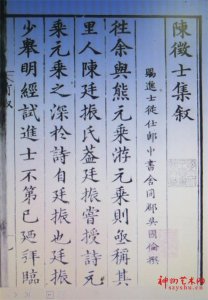 陳徵士集叙
賜進士徵仕郎中書舍同郡吳國倫撰
徃余與熊元乘游元乘則敬稱其
里人陳廷振氏葢廷振嘗授詩元
乘元乘之深於詩自廷振也廷振
少舉明經試進士不第已廼拜臨
神州艺术网
szyshu.cn